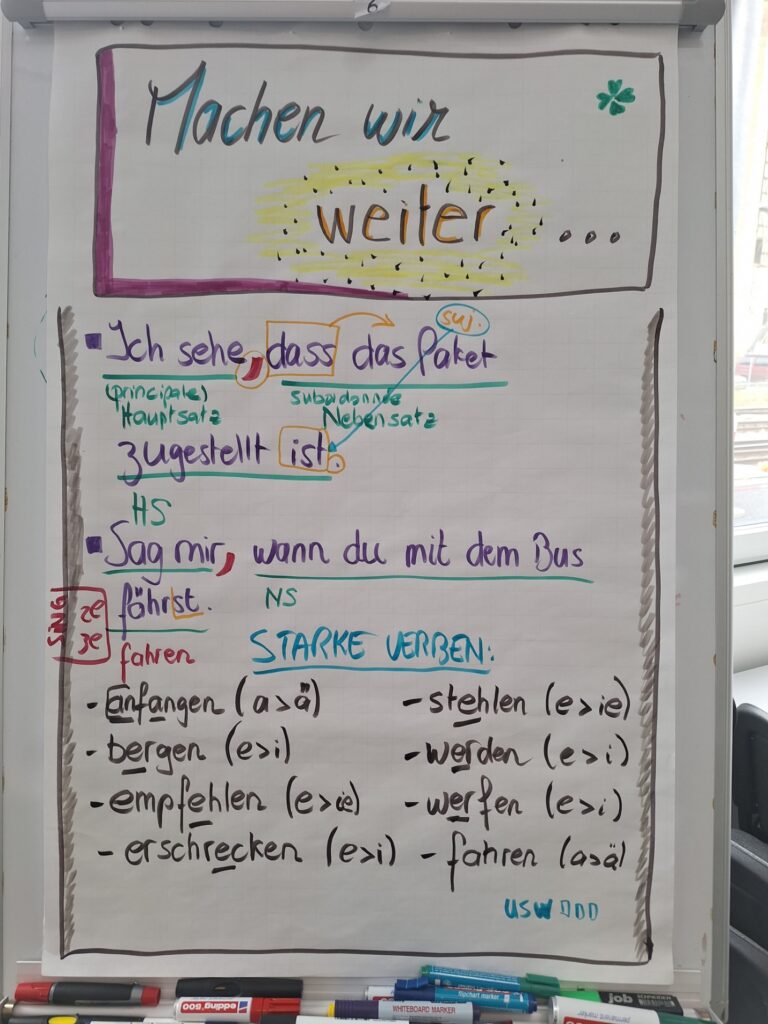 6
Machen wir
weiter ...
suj.
Ich sehe, dass das Paket
(principale) subordonnée
Hauptsatz Nebensatz
zugestellt ist.
HS
Sag mir, wann du mit dem Bus
fährst. NS
SING 2e 3e
fahren STARKE VERBEN:
- anfangen (a>ä) - stehlen (e>ie)
- bergen (e>i) - werden (e>i)
- empfehlen (e>ie) - werfen (e>i)
- erschrecken (e>i) - fahren (a>ä)
usw
edding 500
flipchart marker
WHITEBOARD MARKER
job
permanent marker